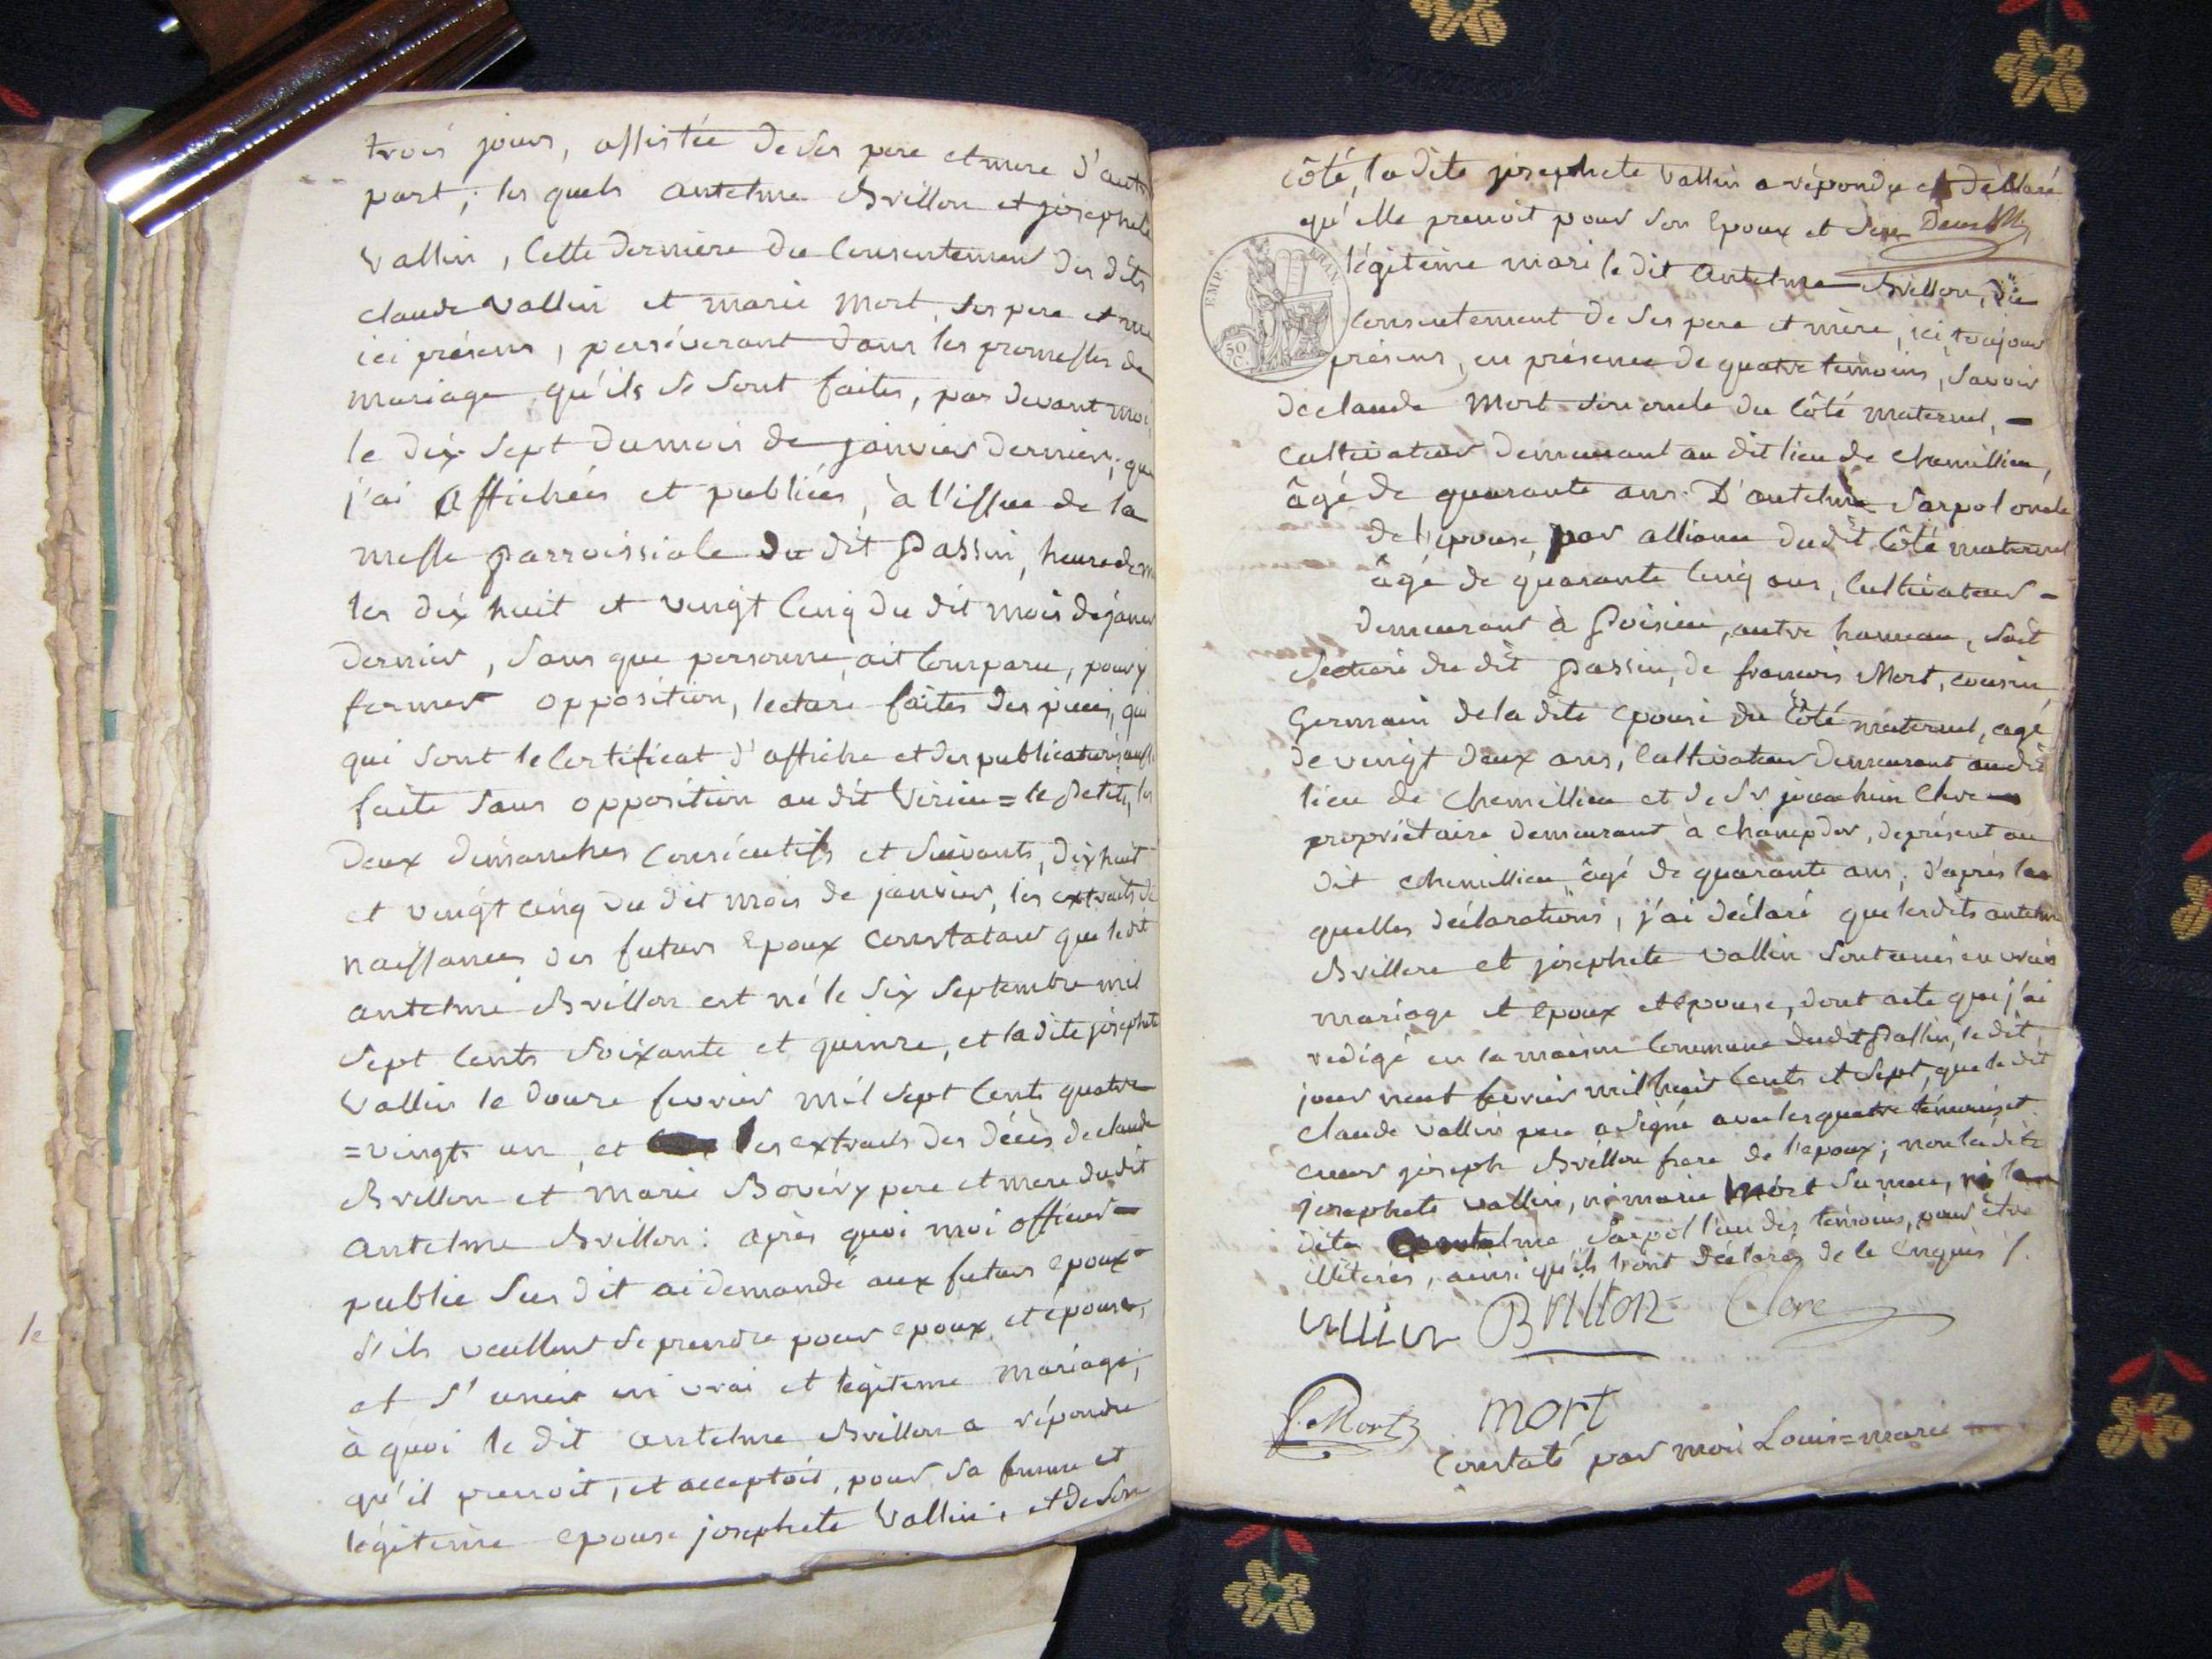 trois jours, assistée de ses pere et mere d'autre
part; les quels antelme Brillon et josephete
Vallin, cette derniere du consentement des dits
claude Vallin et marie Mort, ses pere et mere
ici présens, perséverant dans les promesses de
mariage qu'ils se sont faites, par devant moi,
le dix sept du mois de janvier dernier; que
j'ai affichées et publiées, à l'issue de la
messe parroissiale du dit Passin, heure de
les dix huit et vingt cinq du dit mois de janvier
dernier, sans que personne ait comparu, pour y
former opposition, lecture faites des pieces, qui
qui sont le certificat d'affiche et des publications aussi
faite sans opposition au dit Virieu=le Petit, les
deux dimanches consécutifs et suivants, dix huit
et vingt cinq du dit mois de janvier, les extraits de
naissances des futurs epoux constatant que le dit
antelme Brillon est né le six septembre mil
sept cents soixante et quinze, et la dite josephete
Vallin le douze fevrier mil sept cents quatre
=vingts un, et les extraits des décès de claude
Brillon et marie Bovéry pere et mere du dit
antelme Brillon: après quoi moi officier
public sus dit ai demandé aux futurs epoux
s'ils veullent se prendre pour epoux et épouse,
et s'unir en vrai et légitime mariage;
à quoi le dit antelme Brillon a répondu
qu'il prenoit, et acceptoit, pour sa femme et
légitime epouse josephete Vallin; et de son
côté, la dite josephete Vallin a répondu et déclaré
qu'elle prenoit pour son epoux et son
légitime mari le dit Antelme Brillon, du
consentement de ses pere et mère, ici toujours
présens, en présence de quatre témoins, savoir
EMP. FRAN.
50 C.
de claude Mort son oncle du côté maternel,
cultivateur demeurant au dit lieu de chemillieu,
âgé de quarante ans. D'antelme Sarpol oncle
de l'épouse, par alliance du dit côté maternel
âgé de quarante cinq ans, cultivateur
demeurant à Poisieu, autre hameau, soit
section du dit Passin, de francois Mort, cousin
Germain de la dite epouse du côté maternel, agé
de vingt deux ans, cultivateur demeurant au dit
lieu de Chemillieu et de Sr joachim Clerc
propriétaire demeurant à Champdor, de présent au
dit chemillieu âgé de quarante ans; d'après les
quelles déclarations, j'ai déclaré que les dits antelme
Brillon et josephete Vallin sont unis en vrais
mariage et epoux et epouse, dont acte que j'ai
redigé en la maison commune du dit Passin, le dit
jour neuf fevrier mil huit cents et sept, que le dit
claude Vallin pere a signé avec les quatre témoins et
joseph Brillon frere de l'epoux; non la dite
josephete Vallin, ni marie Mort sa mere, ni le
dit antelme Sarpol l'un des témoins, pour être
illiterés, ainsi qu'ils l'ont déclarés de ce enquis /.
vallin Brillon Clerc
f. Mort mort
Constaté par moi Louis=marie